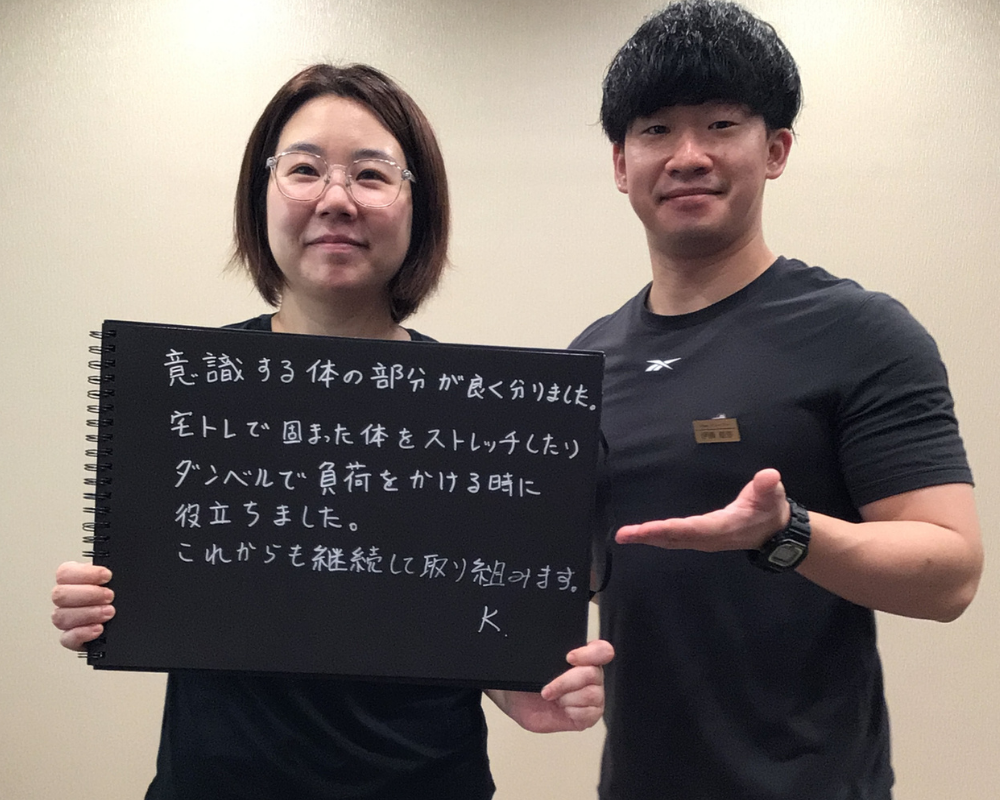 意識する体の部分が良く分りました。
宅トレで固まった体をストレッチしたり
ダンベルで負荷をかける時に
役立ちました。
これからも継続して取り組みます。
K.